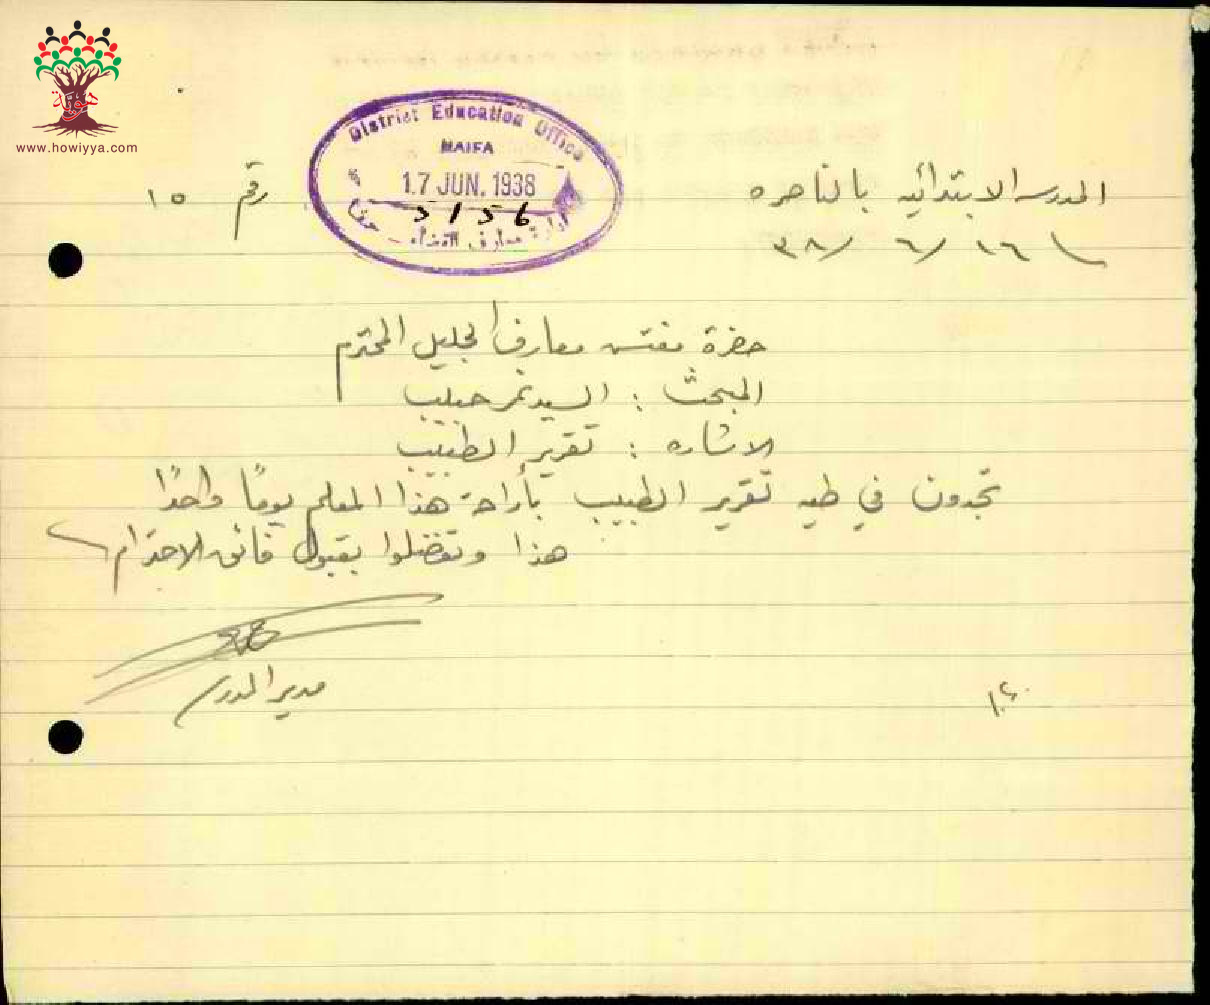 هوية
www.howiyya.com
District Education Office
HAIFA
17 JUN. 1938
5156
ادارة معارف القضاء - حيفا
المدرسه الابتدائيه بالناصره
رقم ١٥
١٦/٦/٣٨
حضرة مفتش معارف الجليل المحترم
المبحث : السيد نمر حبيب
الاشاره : تقرير الطبيب
تجدون في طيه تقرير الطبيب بأراحة هذا المعلم يومًا واحدًا
هذا وتفضلوا بقبول فائق الاحترام
مدير المدرسه